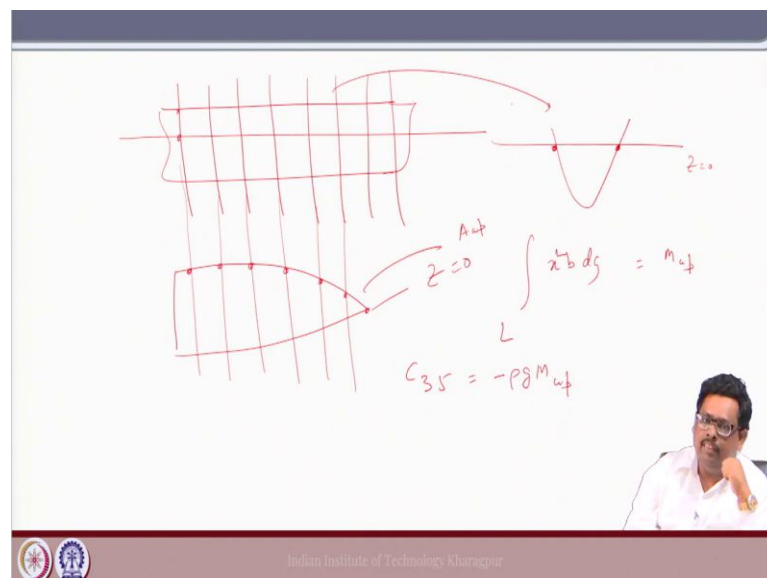 Z=0
Awp
Z=0
∫ x²b dξ = Mwp
L
C35 = -ρg Mwp
Indian Institute of Technology Kharagpur